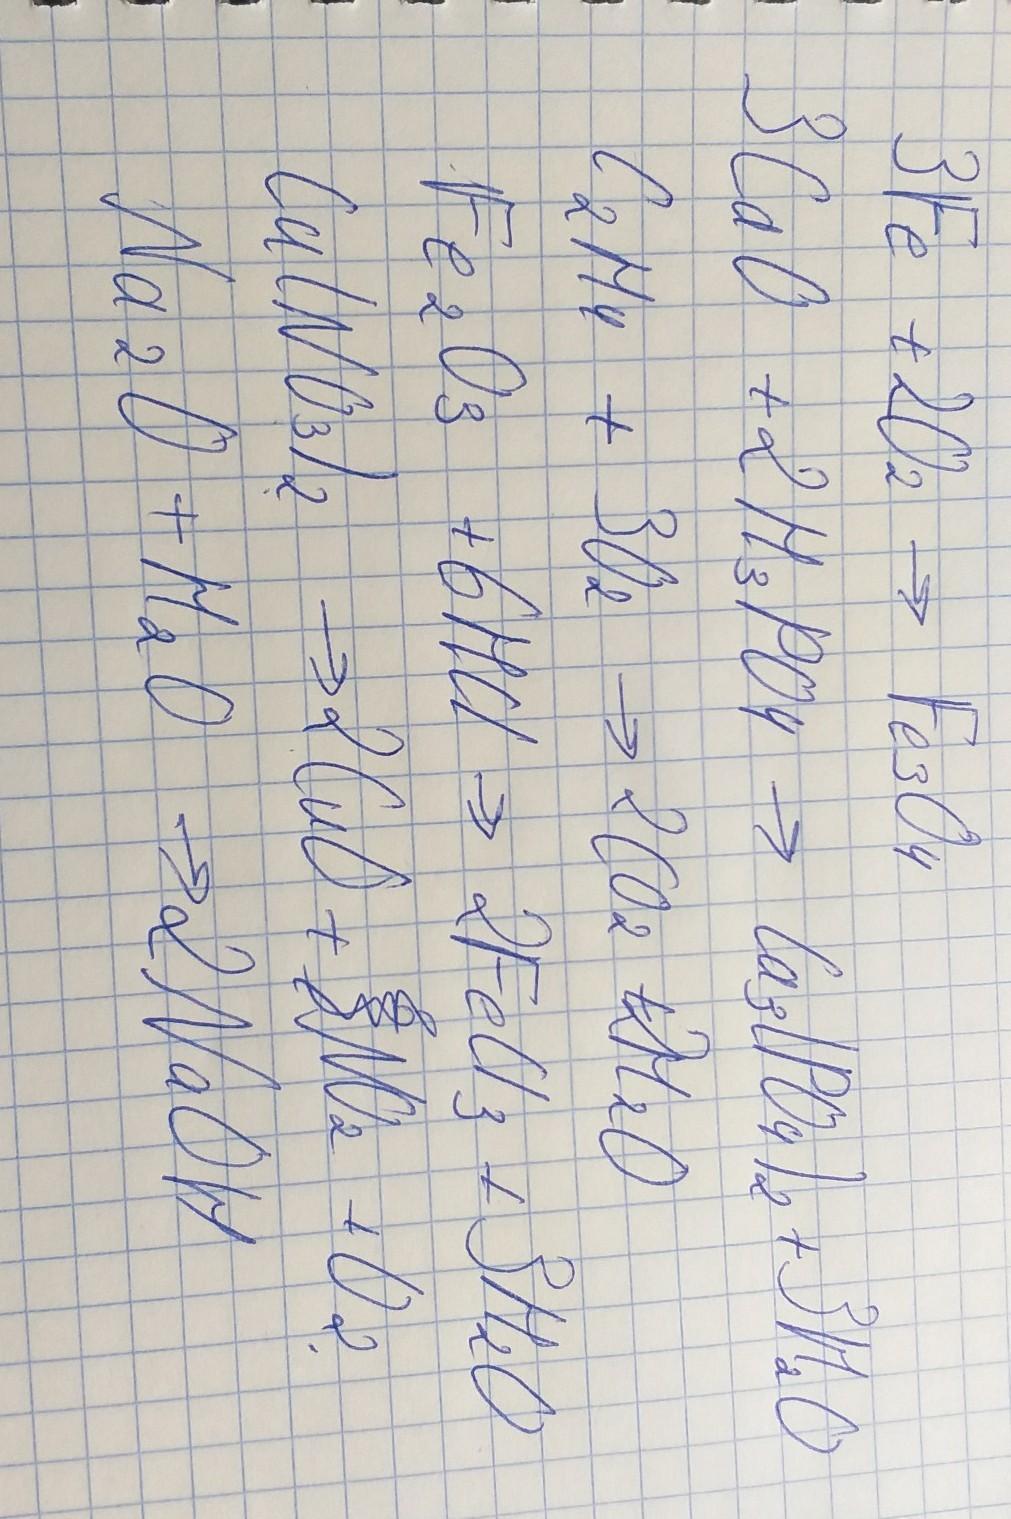 3Fe + 2O₂ → Fe₃O₄
3CaO + 2H₃PO₄ → Ca₃(PO₄)₂ + 3H₂O
C₂H₄ + 3O₂ → 2CO₂ + 2H₂O
Fe₂O₃ + 6HCl → 2FeCl₃ + 3H₂O
Cu(NO₃)₂ → 2CuO + NO₂ + O₂
Na₂O + H₂O → 2NaOH